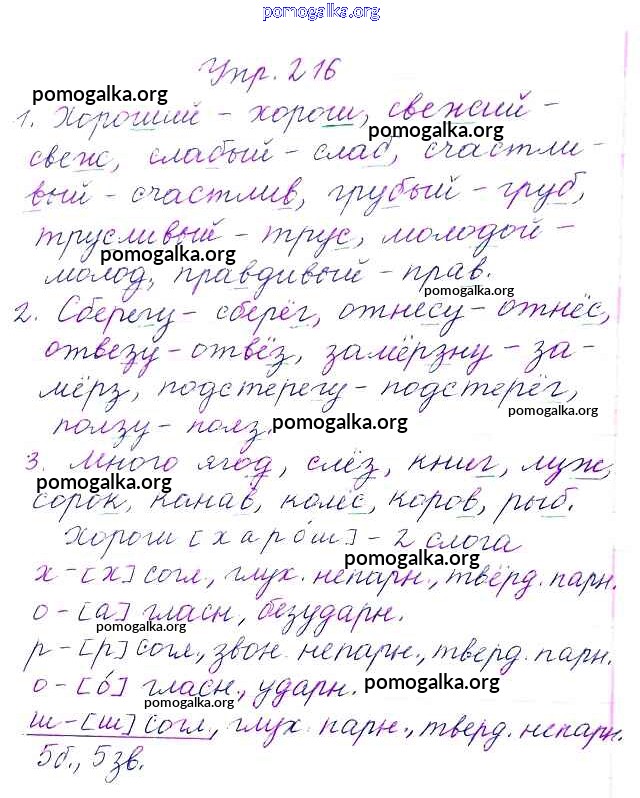 pomogalka.org
Упр. 216
pomogalka.org
1. Хороший - хорош, свежий -
pomogalka.org
свеж, слабый - слаб, счастли-
вый - счастлив, грубый - груб,
трусливый - трус, молодой -
pomogalka.org
молод, правдивый - прав.
pomogalka.org
2. Сберегу - сберёг, отнесу - отнёс,
отвезу - отвёз, замёрзну - за-
мёрз, подстерегу - подстерёг,
pomogalka.org
ползу - полз.
pomogalka.org
3. Много ягод, слёз, книг, луж,
pomogalka.org
сорок, канав, колёс, коров, рыб.
Хорош [харо́ш] - 2 слога
pomogalka.org
х - [х] согл., глух. непарн., твёрд. парн.
о - [а] гласн., безударн.
pomogalka.org
р - [р] согл., звон. непарн., тверд. парн.
о - [о́] гласн., ударн.
pomogalka.org
pomogalka.org
ш - [ш] согл., глух. парн., тверд. непарн.
5б., 5зв.